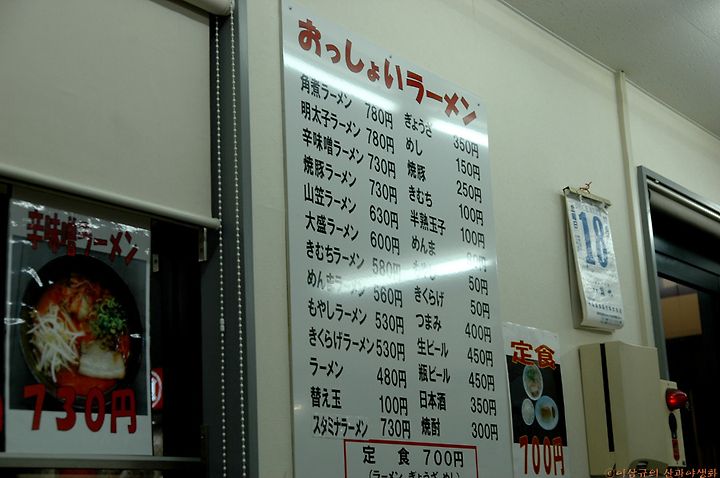 おっしょいラーメン
角煮ラーメン 780円
明太子ラーメン 780円
辛味噌ラーメン 730円
焼豚ラーメン 730円
山笠ラーメン 630円
大盛ラーメン 600円
きむちラーメン 580円
めんまラーメン 560円
もやしラーメン 530円
きくらげラーメン 530円
ラーメン 480円
替え玉 100円
スタミナラーメン 730円
ぎょうざ 350円
めし 150円
焼豚 250円
きむち 100円
半熟玉子 100円
めんま
50円
きくらげ 50円
つまみ 400円
生ビール 450円
瓶ビール 450円
日本酒 350円
焼酎 300円
定食 700円
(ラーメン ぎょうざ めし)
辛味噌ラーメン
730円
定食
700円
18
©이상규의 산과야생화